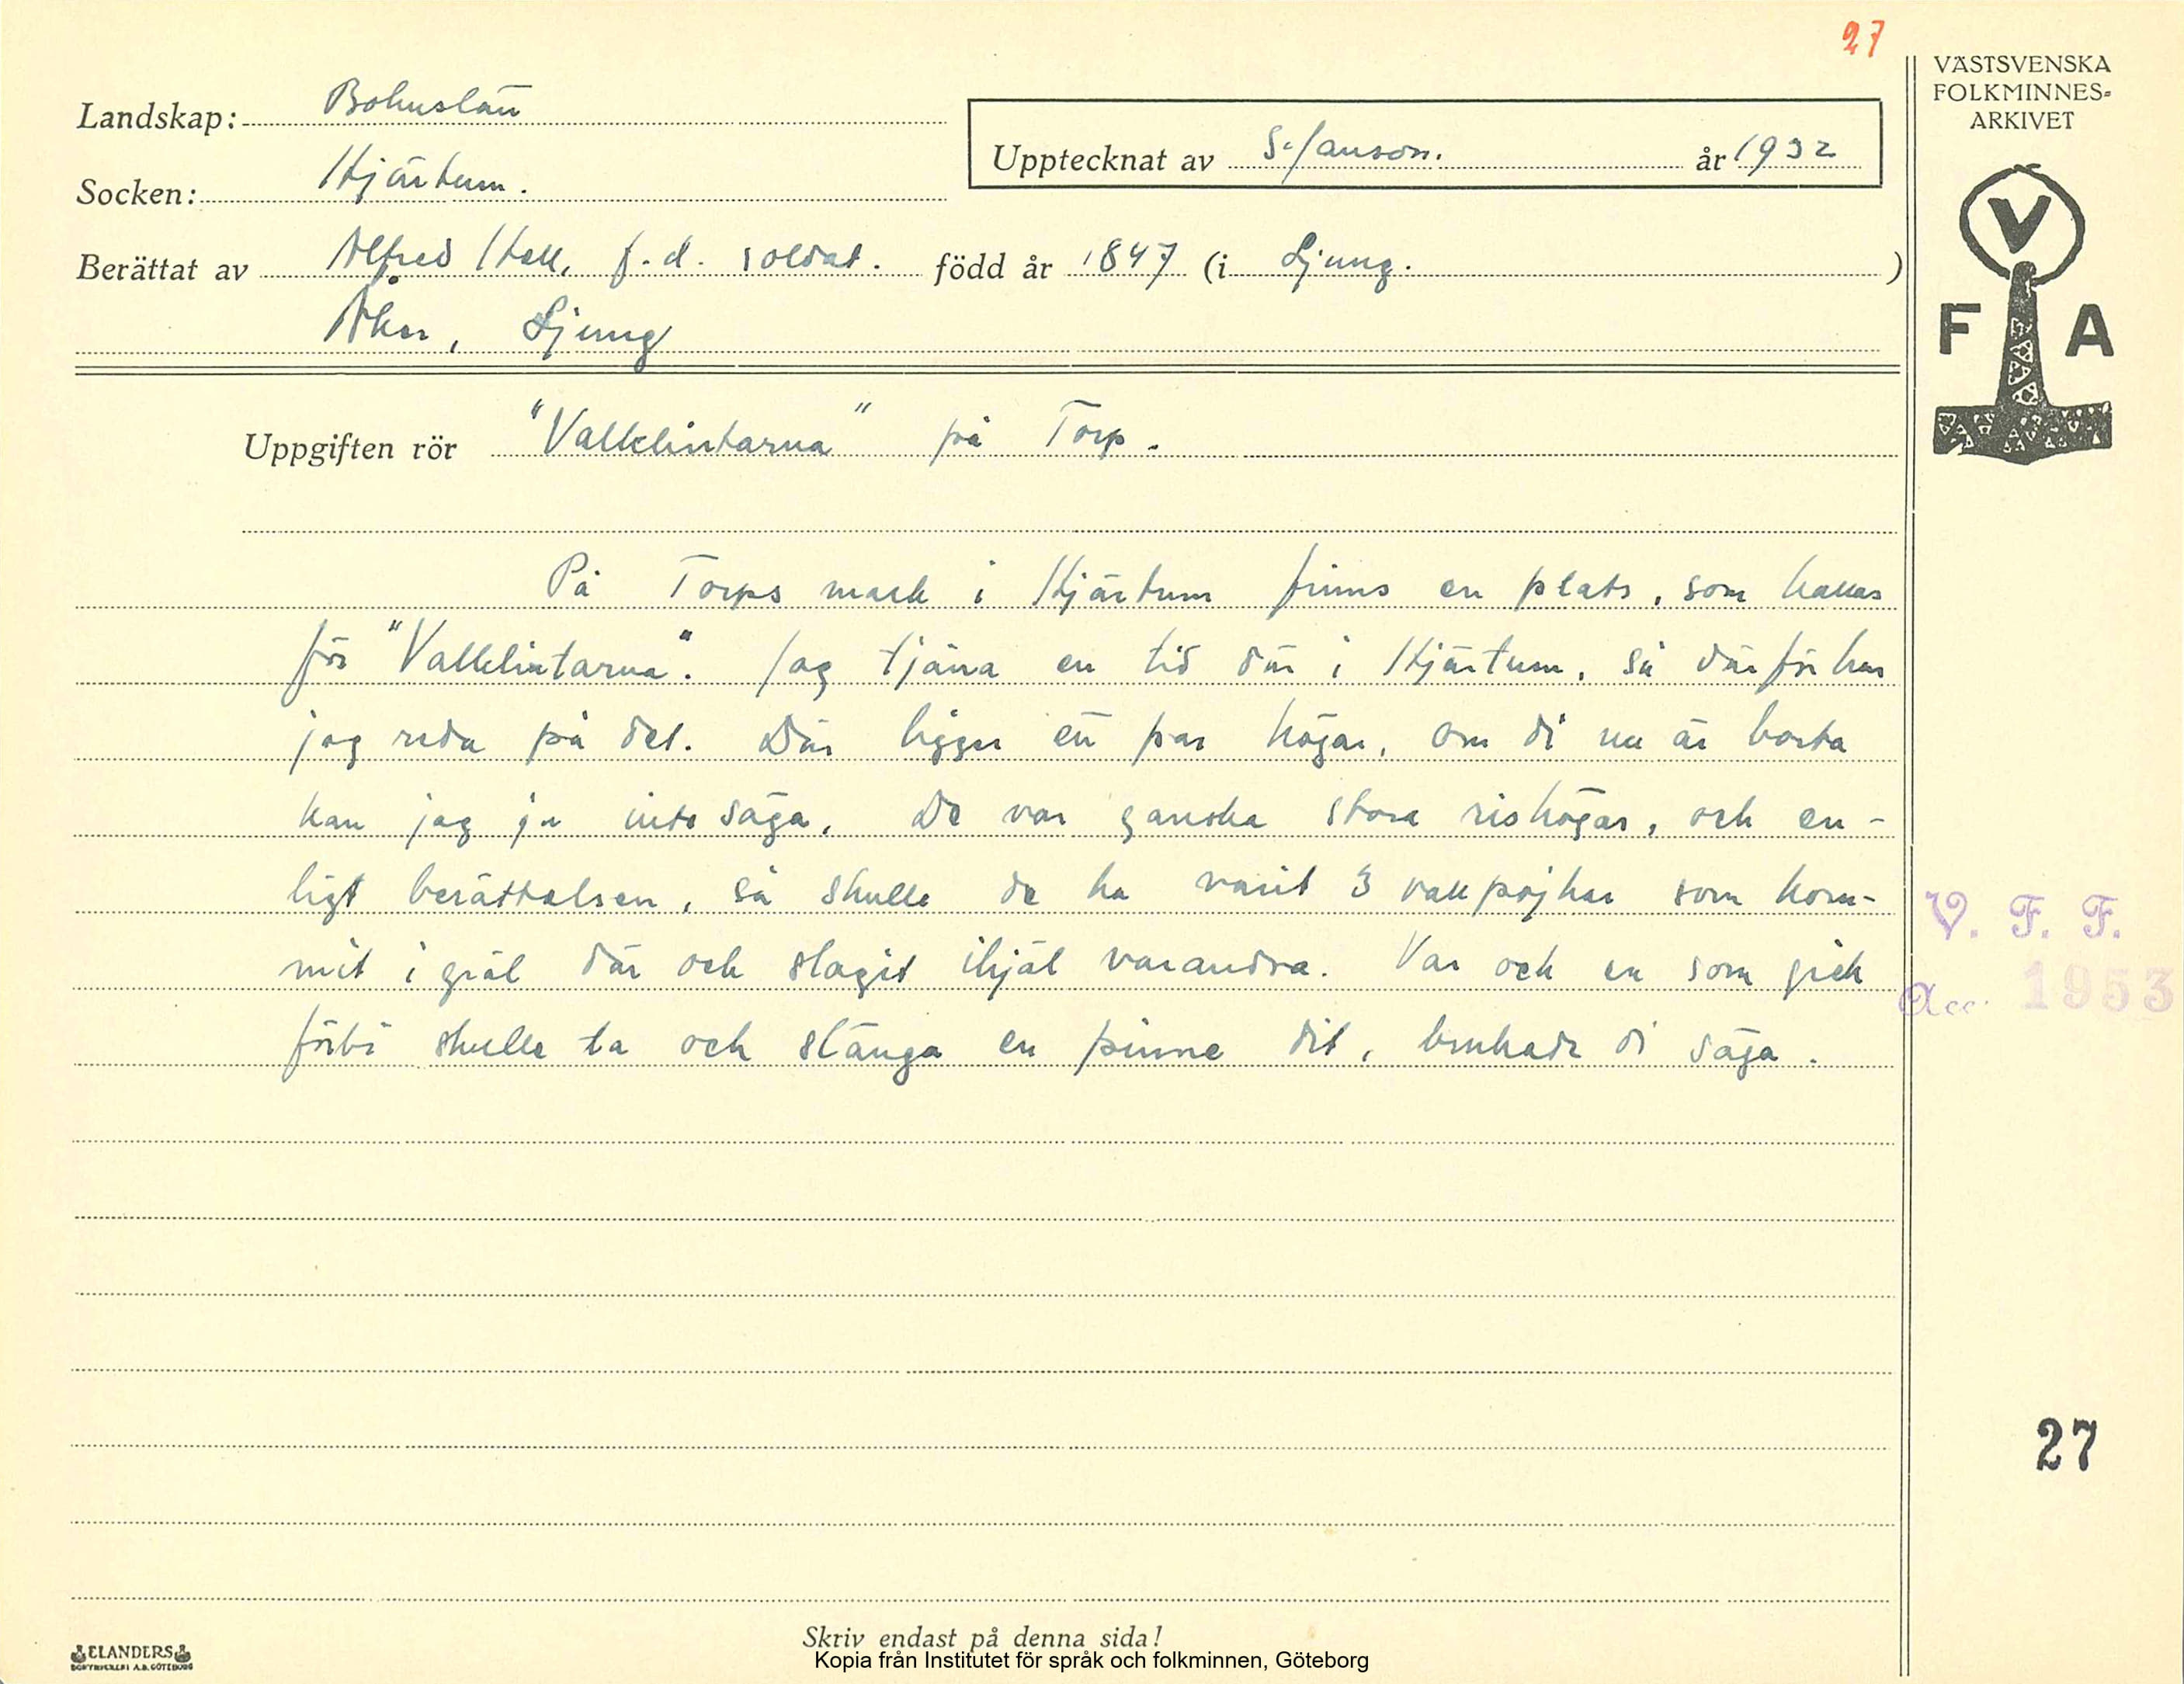 27
VÄSTSVENSKA
FOLKMINNES-
ARKIVET
Landskap: Bohuslän
Upptecknat av S. Janson. år 1932
Socken: Hjärtum.
Berättat av Alfred Hall, f.d. soldat. född år 1847 (i Ljung. )
Åker, Ljung
V
F A
Uppgiften rör "Vallelintarna" på Torp.
På Torps mark i Hjärtum finns en plats, som kallas
för "Vallelintarna". Jag tjäna en tid där i Hjärtum, så därför har
jag reda på det. Där ligger ett par högar, om di nu är borta
kan jag ju inte säga. De var ganska stora rishögar, och en-
ligt berättelsen, så skulle de ha varit 3 vallpojkar som kom-
mit i gräl där och slagit ihjäl varandra. Var och en som gick
förbi skulle ta och slänga en pinne dit, brukade di säga.
V. F. F.
Acc. 1953
27
Skriv endast på denna sida!
ELANDERS
BOKTRYCKERI A.B. GÖTEBORG
Kopia från Institutet för språk och folkminnen, Göteborg